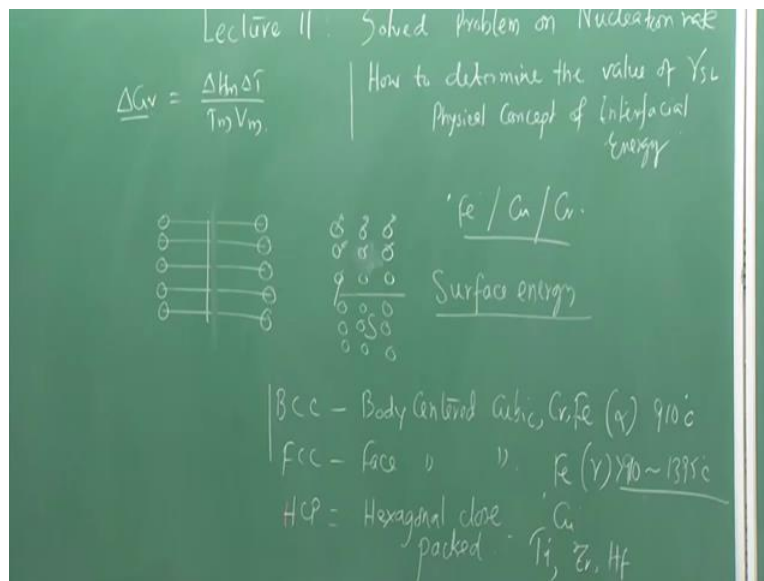 Lecture 11: Solved Problem on Nucleation rate
ΔGv = ΔHm ΔT / Tm Vm.
How to determine the value of γSL
Physical Concept of Interfacial
Energy
Fe / Cu / Cr.
Surface energy
S
BCC - Body Centered Cubic, Cr, Fe (α) 910°c
FCC - Face " " Fe (γ) >910 ~ 1395°c
Cu
HCP = Hexagonal close
packed Ti, Zr, Hf